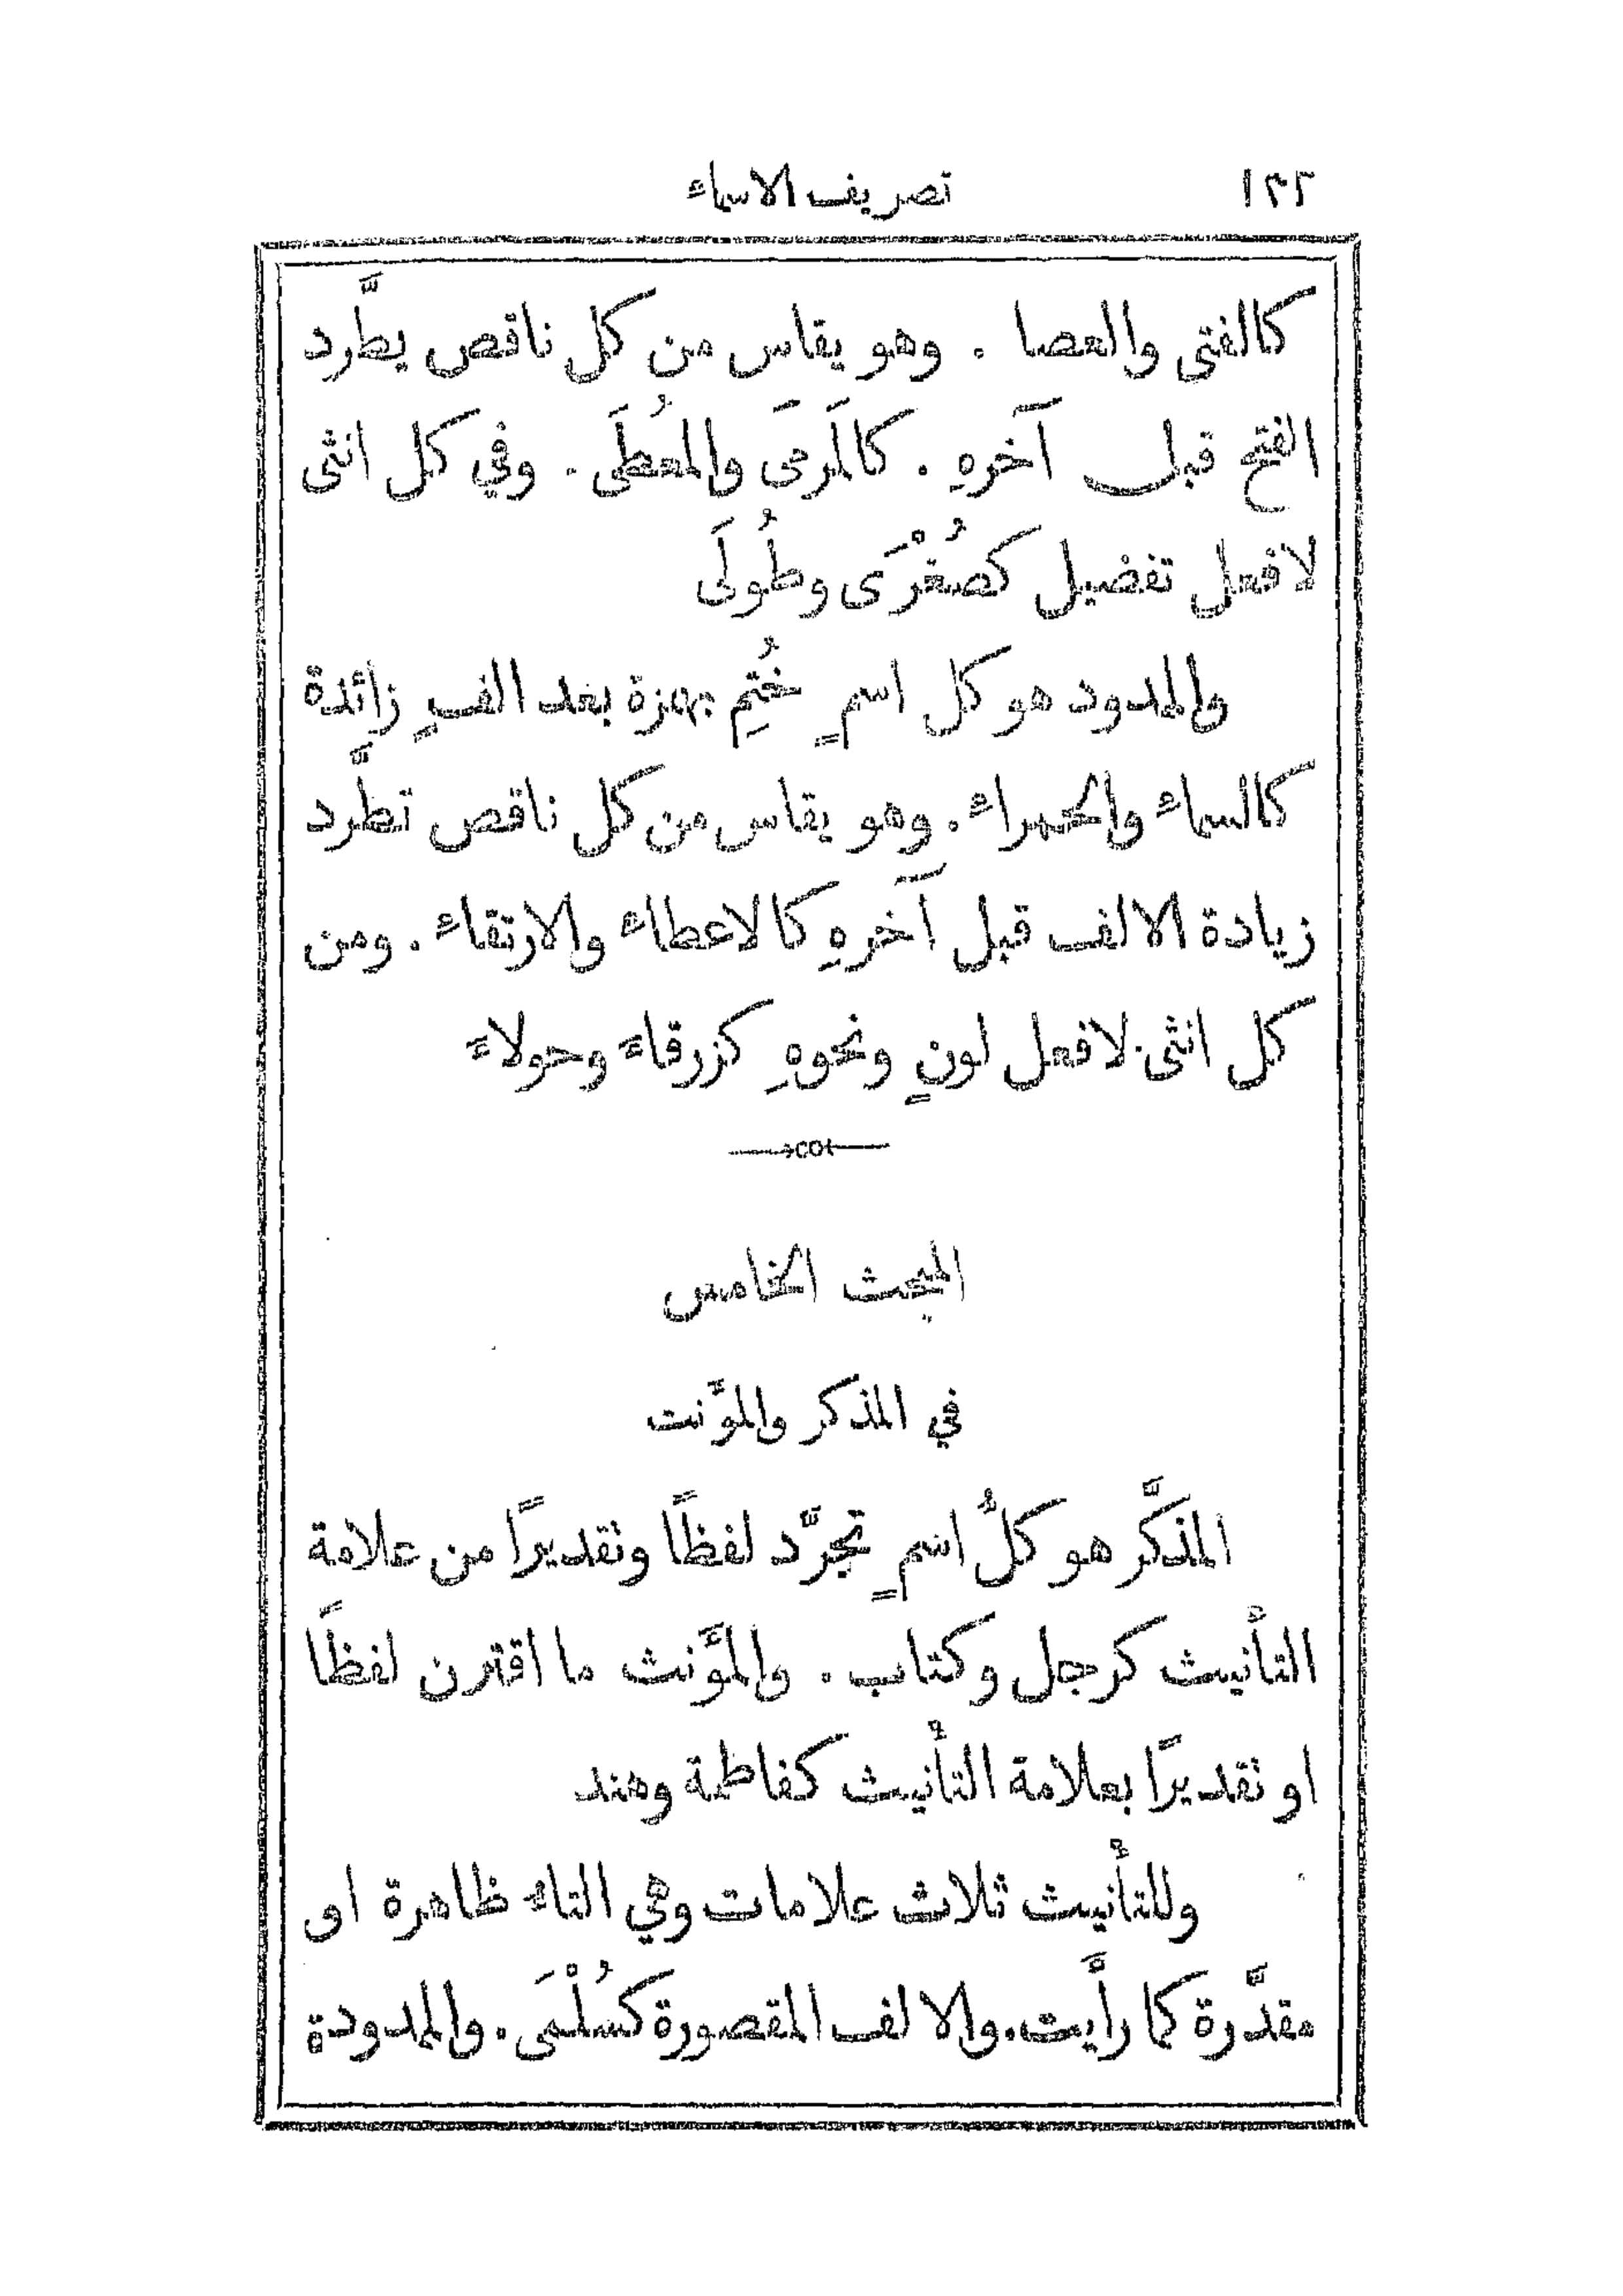 ١٢٢ تصريف الاسماء
كالفتى والعصا . وهو يقاس من كل ناقص يطَّرد
الفتح قبل آخرهِ . كالمَرمَى والمُعطَى . وفي كل انثى
لافعل تفضيل كصُغْرَى وطُولَى
والممدود هو كل اسمٍ خُتِم بهمزة بعد الفٍ زائدة
كالسماء والحمراء . وهو يقاس من كل ناقص تطَّرد
زيادة الالف قبل آخرهِ كالاعطاء والارتقاء . ومن
كل انثى لافعل لونٍ ونحوهِ كزرقاءَ وحولاءَ
المبحث الخامس
في المذكر والمؤَنث
المذكَّر هو كلُّ اسمٍ تجرَّد لفظًا وتقديرًا من علامة
التأْنيث كرجل وكتاب . والمؤَنث ما اقترن لفظًا
او تقديرًا بعلامة التأْنيث كفاطمة وهند
وللتأْنيث ثلاث علامات وهي التاء ظاهرة او
مقدَّرة كما رأَيت . والالف المقصورة كسُلْمَى . والممدودة